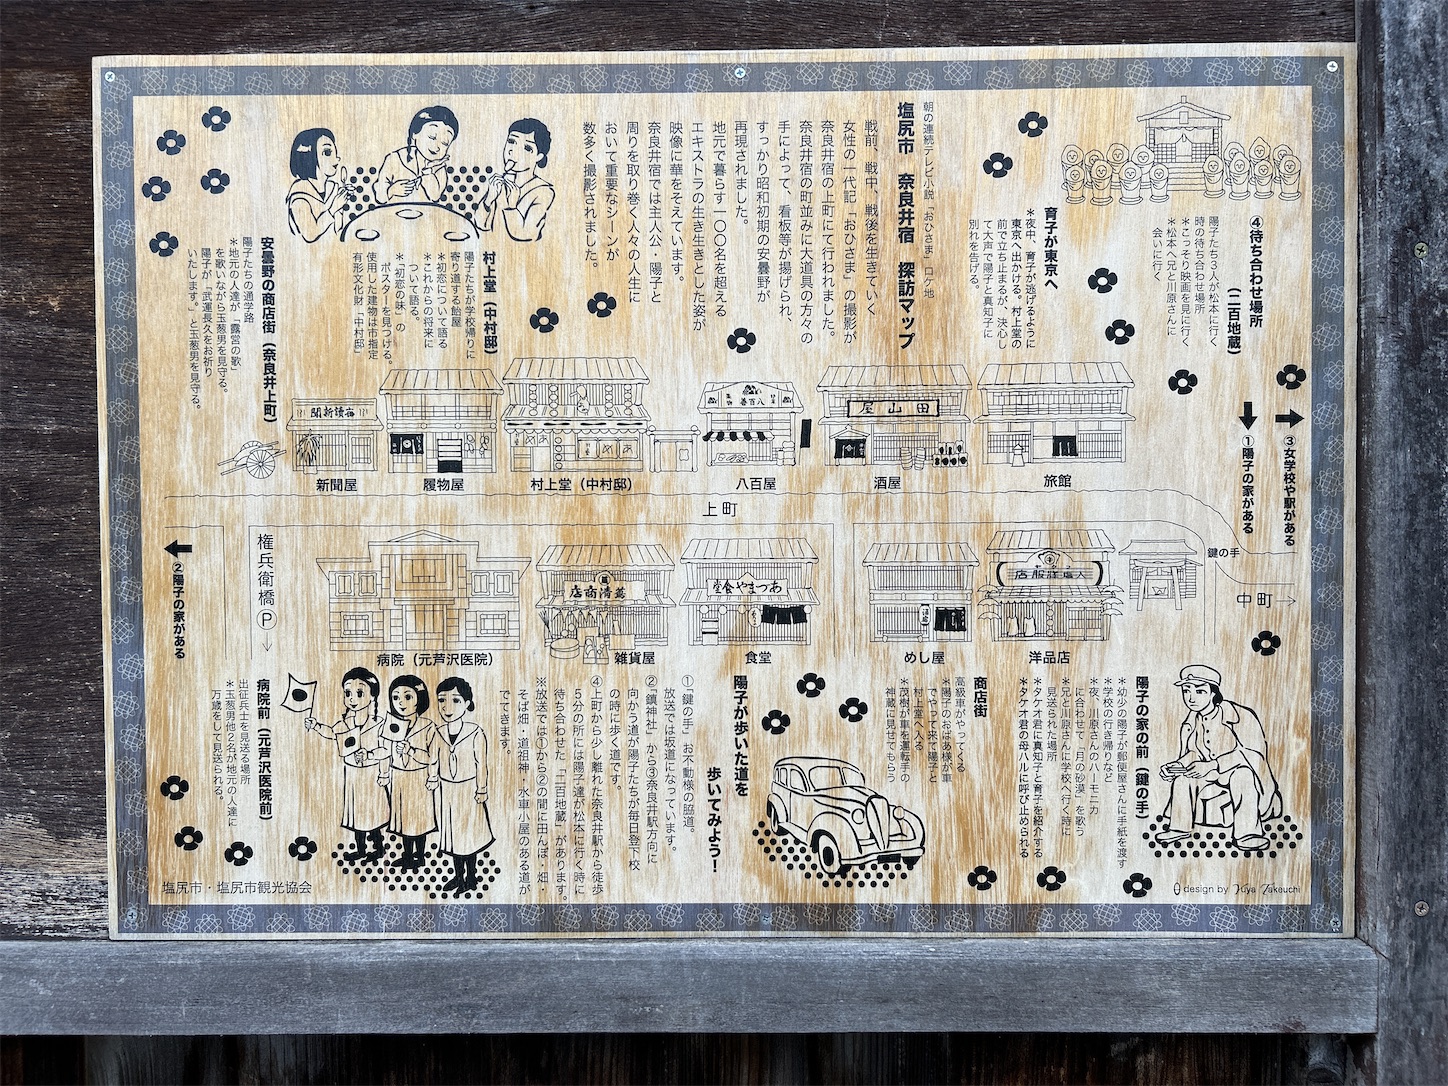 朝の連続テレビ小説「おひさま」ロケ地
塩尻市 奈良井宿 探訪マップ
戦前、戦中、戦後を生きていく
女性の一代記「おひさま」の撮影が
奈良井宿の上町にて行われました。
奈良井宿の町並みに大道具の方々の
手によって、看板等が揚げられ、
すっかり昭和初期の安曇野が
再現されました。
地元で暮らす一〇〇名を超える
エキストラの生き生きとした姿が
映像に華をそえています。
奈良井宿では主人公・陽子と
周りを取り巻く人々の人生に
おいて重要なシーンが
数多く撮影されました。
④待ち合わせ場所
（二百地蔵）
陽子たち３人が松本に行く
時の待ち合わせ場所
＊こっそり映画を見に行く
＊松本へ兄と川原さんに
会いに行く
育子が東京へ
＊夜中、育子が逃げるように
東京へ出かける。村上堂の
前で立ち止まるが、決心し
て大声で陽子と真知子に
別れを告げる。
村上堂（中村邸）
陽子たちが学校帰りに
寄り道する飴屋
＊初恋について語る
＊これからの将来に
ついて語る。
＊「初恋の味」の
ポスターを見つける。
使用した建物は市指定
有形文化財「中村邸」
安曇野の商店街（奈良井上町）
陽子たちの通学路
＊地元の人達が「露営の歌」
を歌いながら玉葱男を見守る。
陽子が「武運長久をお祈り
いたします。」と玉葱男を見守る。
③女学校や駅がある
①陽子の家がある
新聞屋
履物屋
村上堂（中村邸）
八百屋
酒屋
旅館
聞新讀毎
八百春
屋山田
上町
鍵の手
中町→
②陽子の家がある
権兵衛橋Ⓟ→
病院（元芦沢医院）
雑貨屋
食堂
めし屋
洋品店
店商清
堂食やまつあ
陽子の家の前（鍵の手）
＊幼少の陽子が郵便屋さんに手紙を渡す
＊学校の行き帰りなど
＊夜、川原さんのハーモニカ
に合わせて「月の砂漠」を歌う
＊兄と川原さんに学校へ行く時に
見送られた場所
＊タケオ君に真知子と育子を紹介する
＊タケオ君の母ハルに呼び止められる
商店街
高級車がやってくる
＊陽子のおばあ様が車
でやって来て陽子と
村上堂へ入る
＊茂樹が車を運転手の
神蔵に見せてもらう
陽子が歩いた道を
歩いてみよう！
①「鍵の手」お不動様の脇道。
放送では坂道になっています。
②「鎮神社」から③奈良井駅方向に
向かう道が陽子たちが毎日登下校
の時に歩く道です。
④上町から少し離れた奈良井駅から徒歩
５分の所には陽子達が松本に行く時に
待ち合わせた「二百地蔵」があります。
※放送では①から②の間に田んぼ・畑・
そば畑・道祖神・水車小屋のある道が
でてきます。
病院前（元芦沢医院前）
出征兵士を見送る場所
＊玉葱男他２名が地元の人達に
万歳をして見送られる。
塩尻市・塩尻市観光協会
design by Yuya Takeuchi